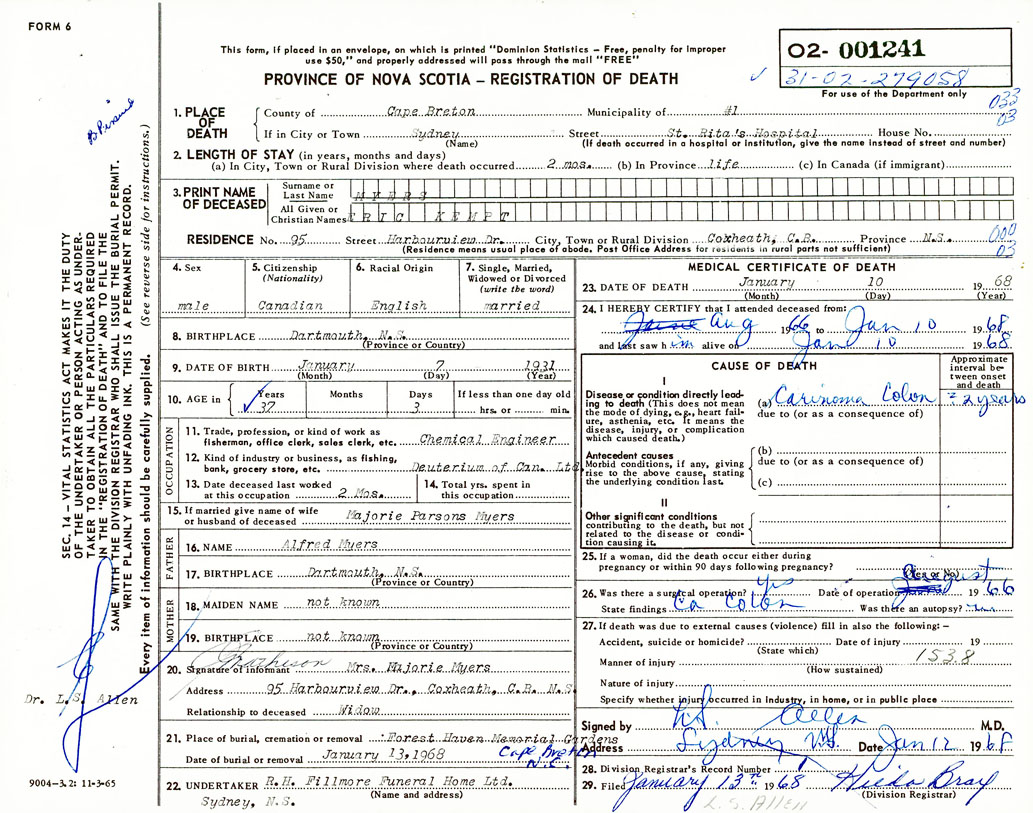 FORM 6
This form, if placed in an envelope, on which is printed "Dominion Statistics – Free, penalty for improper
use $50," and properly addressed will pass through the mail "FREE"
PROVINCE OF NOVA SCOTIA – REGISTRATION OF DEATH
O2- 001241
31-02-279058
For use of the Department only
033
03
1. PLACE OF DEATH
County of Cape Breton Municipality of #1
If in City or Town Sydney Street St. Rita's Hospital House No.
(Name) (If death occurred in a hospital or institution, give the name instead of street and number)
2. LENGTH OF STAY (in years, months and days)
(a) In City, Town or Rural Division where death occurred 2 mos. (b) In Province life (c) In Canada (if immigrant)
3. PRINT NAME OF DECEASED
Surname or Last Name MYERS
All Given or Christian Names ERIC KEMPT
RESIDENCE No. 95 Street Harbourview Dr. City, Town or Rural Division Coxheath, C.B. Province N.S.
(Residence means usual place of abode. Post Office Address for residents in rural parts not sufficient)
000
03
4. Sex
male
5. Citizenship
(Nationality)
Canadian
6. Racial Origin
English
7. Single, Married,
Widowed or Divorced
(write the word)
married
8. BIRTHPLACE Dartmouth, N.S.
(Province or Country)
9. DATE OF BIRTH January 7 1931
(Month) (Day) (Year)
10. AGE in
Years Months Days If less than one day old
37 3 hrs. or min.
OCCUPATION
11. Trade, profession, or kind of work as
fisherman, office clerk, sales clerk, etc. Chemical Engineer
12. Kind of industry or business, as fishing,
bank, grocery store, etc. Deuterium of Can. Ltd.
13. Date deceased last worked
at this occupation 2 Mos.
14. Total yrs. spent in
this occupation
15. If married give name of wife
or husband of deceased Majorie Parsons Myers
FATHER
16. NAME Alfred Myers
17. BIRTHPLACE Dartmouth, N.S.
(Province or Country)
MOTHER
18. MAIDEN NAME not known
19. BIRTHPLACE not known
(Province or Country)
20. Signature of informant Mrs. Majorie Myers
Address 95 Harbourview Dr., Coxheath, C.B. N.S.
Relationship to deceased Widow
21. Place of burial, cremation or removal Forest Haven Memorial Gardens
Date of burial or removal January 13, 1968 Cape Breton
N.S.
22. UNDERTAKER R.H. Fillmore Funeral Home Ltd.
(Name and address)
Sydney, N.S.
MEDICAL CERTIFICATE OF DEATH
23. DATE OF DEATH January 10 19 68
(Month) (Day) (Year)
24. I HEREBY CERTIFY that I attended deceased from:
Aug 1966 to Jan 10 1968
and last saw him alive on Jan 10 1968
CAUSE OF DEATH
Approximate
interval be-
tween onset
and death
I
Disease or condition directly lead-
ing to death (This does not mean
the mode of dying, e.g., heart fail-
ure, asthenia, etc. It means the
disease, injury, or complication
which caused death.)
(a) Carinoma Colon = 2 years
due to (or as a consequence of)
Antecedent causes
Morbid conditions, if any, giving
rise to the above cause, stating
the underlying condition last.
(b)
due to (or as a consequence of)
(c)
II
Other significant conditions
contributing to the death, but not
related to the disease or condi-
tion causing it.
25. If a woman, did the death occur either during
pregnancy or within 90 days following pregnancy?
(Yes or No)
26. Was there a surgical operation? Yes Date of operation August 1966
State findings Ca Colon Was there an autopsy? no
27. If death was due to external causes (violence) fill in also the following:–
Accident, suicide or homicide? Date of injury 19
(State which)
Manner of injury 1538
(How sustained)
Nature of injury
Specify whether injury occurred in industry, in home, or in public place
Signed by L.S. Allen M.D.
Address Sydney N.S. Date Jan 12 1968
28. Division Registrar's Record Number
29. Filed January 13th 1968 Hilda Bray
(Division Registrar)
L.S. ALLEN
SEC. 14 – VITAL STATISTICS ACT MAKES IT THE DUTY
OF THE UNDERTAKER OR PERSON ACTING AS UNDER-
TAKER TO OBTAIN ALL THE PARTICULARS REQUIRED
IN THE "REGISTRATION OF DEATH" AND TO FILE THE
SAME WITH THE DIVISION REGISTRAR WHO SHALL ISSUE THE BURIAL PERMIT.
WRITE PLAINLY WITH UNFADING INK. THIS IS A PERMANENT RECORD.
Every item of information should be carefully supplied. (See reverse side for instructions.)
Dr. L.S. Allen
9004–3.2: 11-3-65